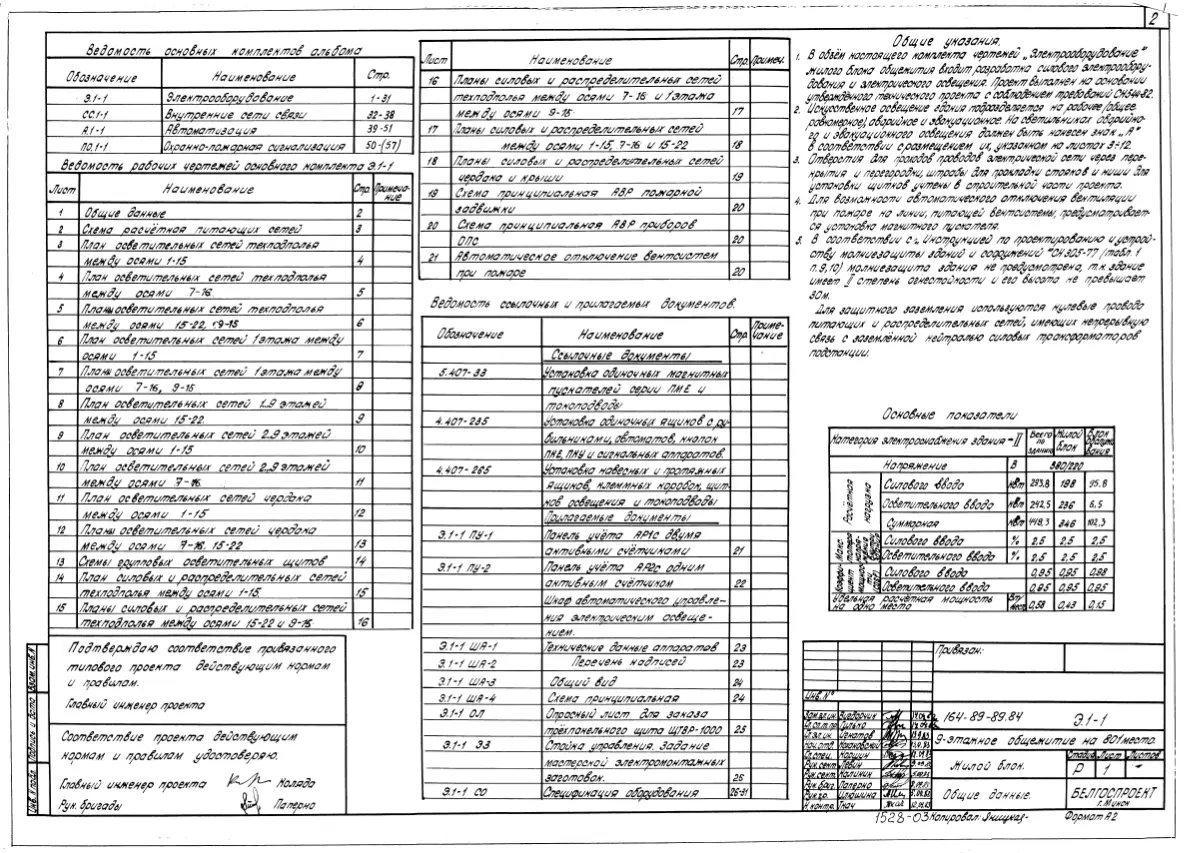 2
Ведомость основных комплектов альбома
Обозначение Наименование Стр.
Э.1-1 Электрооборудование 1-31
СС1-1 Внутренние сети связи 32-38
А.1-1 Автоматизация 39-51
ПО.1-1 Охранно-пожарная сигнализация 50-(57)
Ведомость рабочих чертежей основного комплекта Э.1-1
Лист Наименование Стр. Примеча-
ние
1 Общие данные 2
2 Схема расчётная питающих сетей 3
3 План осветительных сетей техподполья
между осями 1-15 4
4 План осветительных сетей техподполья
между осями 7-16. 5
5 Планы осветительных сетей техподполья
между осями 15-22, 9-15 6
6 План осветительных сетей 1 этажа между
осями 1-15 7
7 Планы осветительных сетей 1 этажа между
осями 7-16, 9-15 8
8 План осветительных сетей 1..9 этажей
между осями 15-22. 9
9 План осветительных сетей 2..9 этажей
между осями 1-15 10
10 План осветительных сетей 2..9 этажей
между осями 7-16 11
11 План осветительных сетей чердака
между осями 1-15 12
12 Планы осветительных сетей чердака
между осями 7-16, 15-22 13
13 Схемы групповых осветительных щитов 14
14 План силовых и распределительных сетей
техподполья между осями 1-15. 15
15 Планы силовых и распределительных сетей
техподполья между осями 15-22 и 9-15 16
Подтверждаю соответствие привязанного
типового проекта действующим нормам
и правилам.
Главный инженер проекта
Соответствие проекта действующим
нормам и правилам удостоверяю.
Главный инженер проекта Коляда
Рук. бригады Паперно
Лист Наименование Стр. Примеч.
16 Планы силовых и распределительных сетей
техподполья между осями 7-16 и 1 этажа
между осями 9-15 17
17 Планы силовых и распределительных сетей
между осями 1-15, 7-16 и 15-22 18
18 Планы силовых и распределительных сетей
чердака и крыши 19
19 Схема принципиальная АВР пожарной
задвижки 20
20 Схема принципиальная АВР приборов
ОПС 20
21 Автоматическое отключение вентсистем
при пожаре 20
Ведомость ссылочных и прилагаемых документов.
Обозначение Наименование Стр. Приме-
чание
Ссылочные документы
5.407-33 Установка одиночных магнитных
пускателей серии ПМЕ и
токоподводы
4.407-235 Установка одиночных ящиков с ру-
бильниками, автоматов, кнопок
ПКЕ, ПКУ и сигнальных аппаратов.
4.407-265 Установка навесных и протяжных
ящиков, клеммных коробок, щит-
ков освещения и токоподводы
Прилагаемые документы
Э.1-1 ПУ-1 Панель учёта АР1С двумя
активными счётчиками 21
Э.1-1 ПУ-2 Панель учёта АР2С одним
активным счётчиком 22
Шкаф автоматического управле-
ния электрическим освеще-
нием.
Э.1-1 ША-1 Технические данные аппаратов 23
Э.1-1 ША-2 Перечень надписей 23
Э.1-1 ША-3 Общий вид 24
Э.1-1 ША-4 Схема принципиальная 24
Э.1-1 ОЛ Опросный лист для заказа
трехпанельного щита ЩГВР-1000 25
Э.1-1 ЭЗ Стойка управления. Задание
мастерской электромонтажных
заготовок. 26
Э.1-1 СО Спецификация оборудования 26-31
Общие указания.
1. В объём настоящего комплекта чертежей „Электрооборудование"
жилого блока общежития входит разработка силового электрообору-
дования и электрического освещения. Проект выполнен на основании
утверждённого технического проекта с соблюдением требований СН544-82.
2. Искусственное освещение здания подразделяется на рабочее (общее
равномерное), аварийное и эвакуационное. На светильниках аварийно-
го и эвакуационного освещения должен быть нанесен знак „А"
в соответствии с размещением их, указанном на листах 3÷12.
3. Отверстия для проходов проводов электрической сети через пере-
крытия и перегородки, штрабы для прокладки стояков и ниши для
установки щитков учтены в строительной части проекта.
4. Для возможности автоматического отключения вентиляции
при пожаре на линии, питающей вентсистемы, предусматривает-
ся установка магнитного пускателя.
5. В соответствии с „Инструкцией по проектированию и устрой-
ству молниезащиты зданий и сооружений" СН 305-77 (табл. 1
п. 9,10) молниезащита здания не предусмотрена, т.к. здание
имеет II степень огнестойкости и его высота не превышает
30м.
Для защитного заземления используются нулевые провода
питающих и распределительных сетей, имеющих непрерывную
связь с заземлённой нейтралью силовых трансформаторов
подстанции.
Основные показатели
Категория электроснабжения здания - II Всего по зданию Жилой блок Блок обслуживания
Напряжение В 380/220
Расчетная нагрузка
Силового ввода кВт 293,8 198 95.8
Осветительного ввода кВт 242,5 236 6.5
Суммарная кВт 448,3 346 102,3
Силового ввода % 2,5 2,5 2,5
Осветительного ввода % 2,5 2,5 2,5
Силового ввода 0,95 0,95 0,98
Осветительного ввода 0,95 0,95 0,95
Удельная расчётная мощность
на одно место 0,58 0,43 0,15
Привязан:
Инв. №
164-89-89.84 Э.1-1
9-этажное общежитие на 801 место.
Жилой блок.
Стадия Лист Листов
Р 1 -
Общие данные.
БЕЛГОСПРОЕКТ
г. Минск
Рук.сект. Левин
Рук.сект. Калинин
Рук.бриг. Паперно
Рук.гр. Илюшина
Н.контр. Ткач
1528-03 Копировал: Формат А2